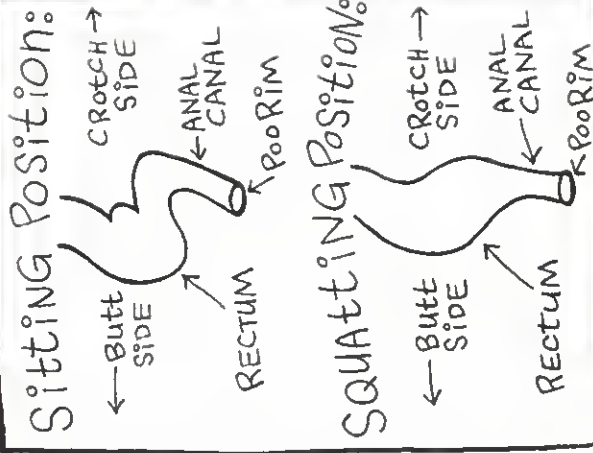 Sitting Position:
← Butt SIDE
CRotCH → SIDE
← ANAL CANAL
RECTUM
POORIM
SQUAttING Position:
← Butt SIDE
CRotCH → SIDE
ANAL CANAL
RECTUM
POORIM